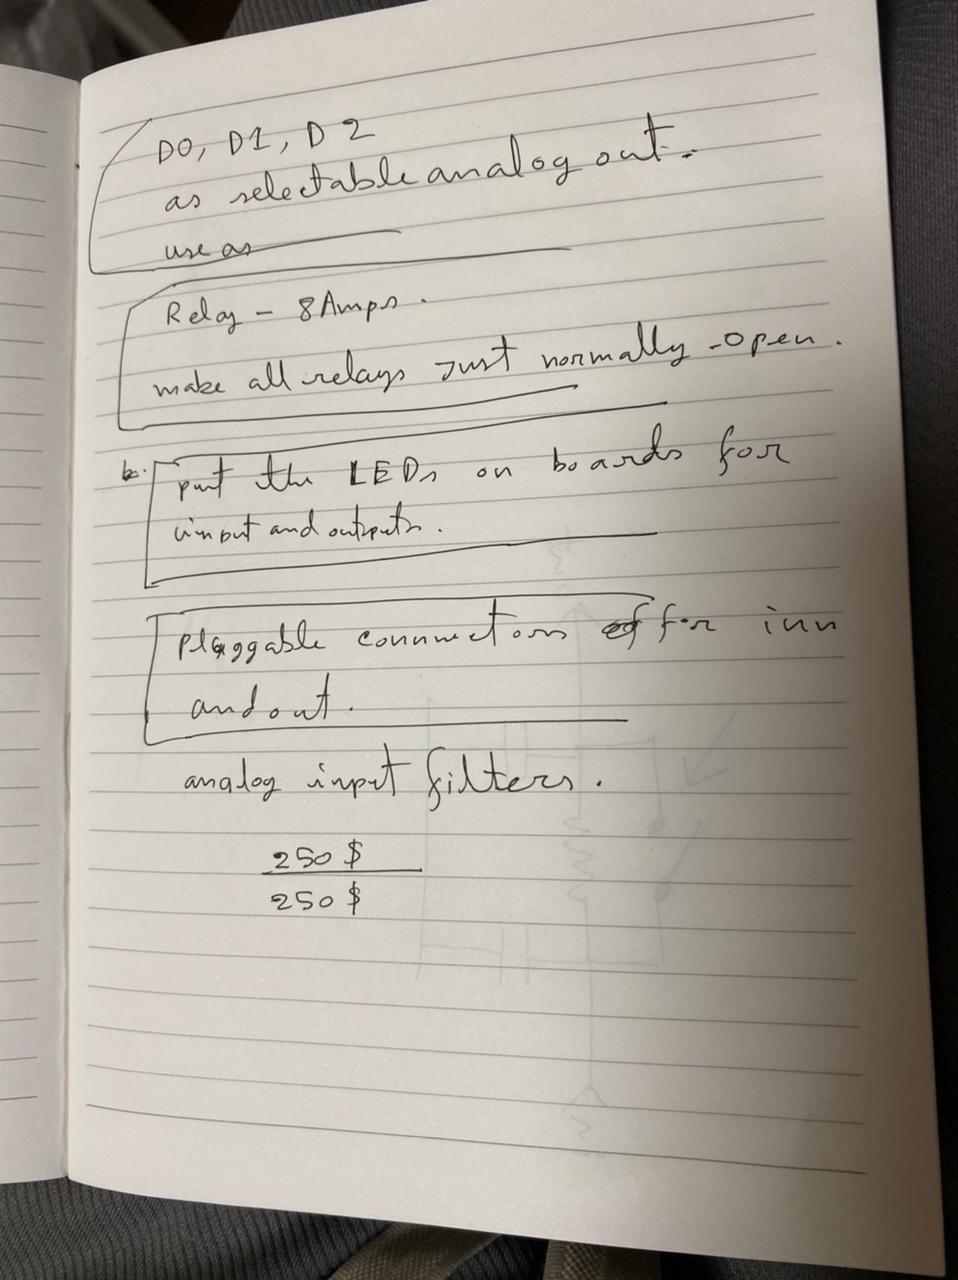 D0, D1, D2
as selectable analog out.
use as
Relay - 8 Amps.
make all relays Just normally -open.
b. put the LEDs on boards for
input and outputs.
pluggable connectors for inn
and out.
analog input filters.
250 $
250 $